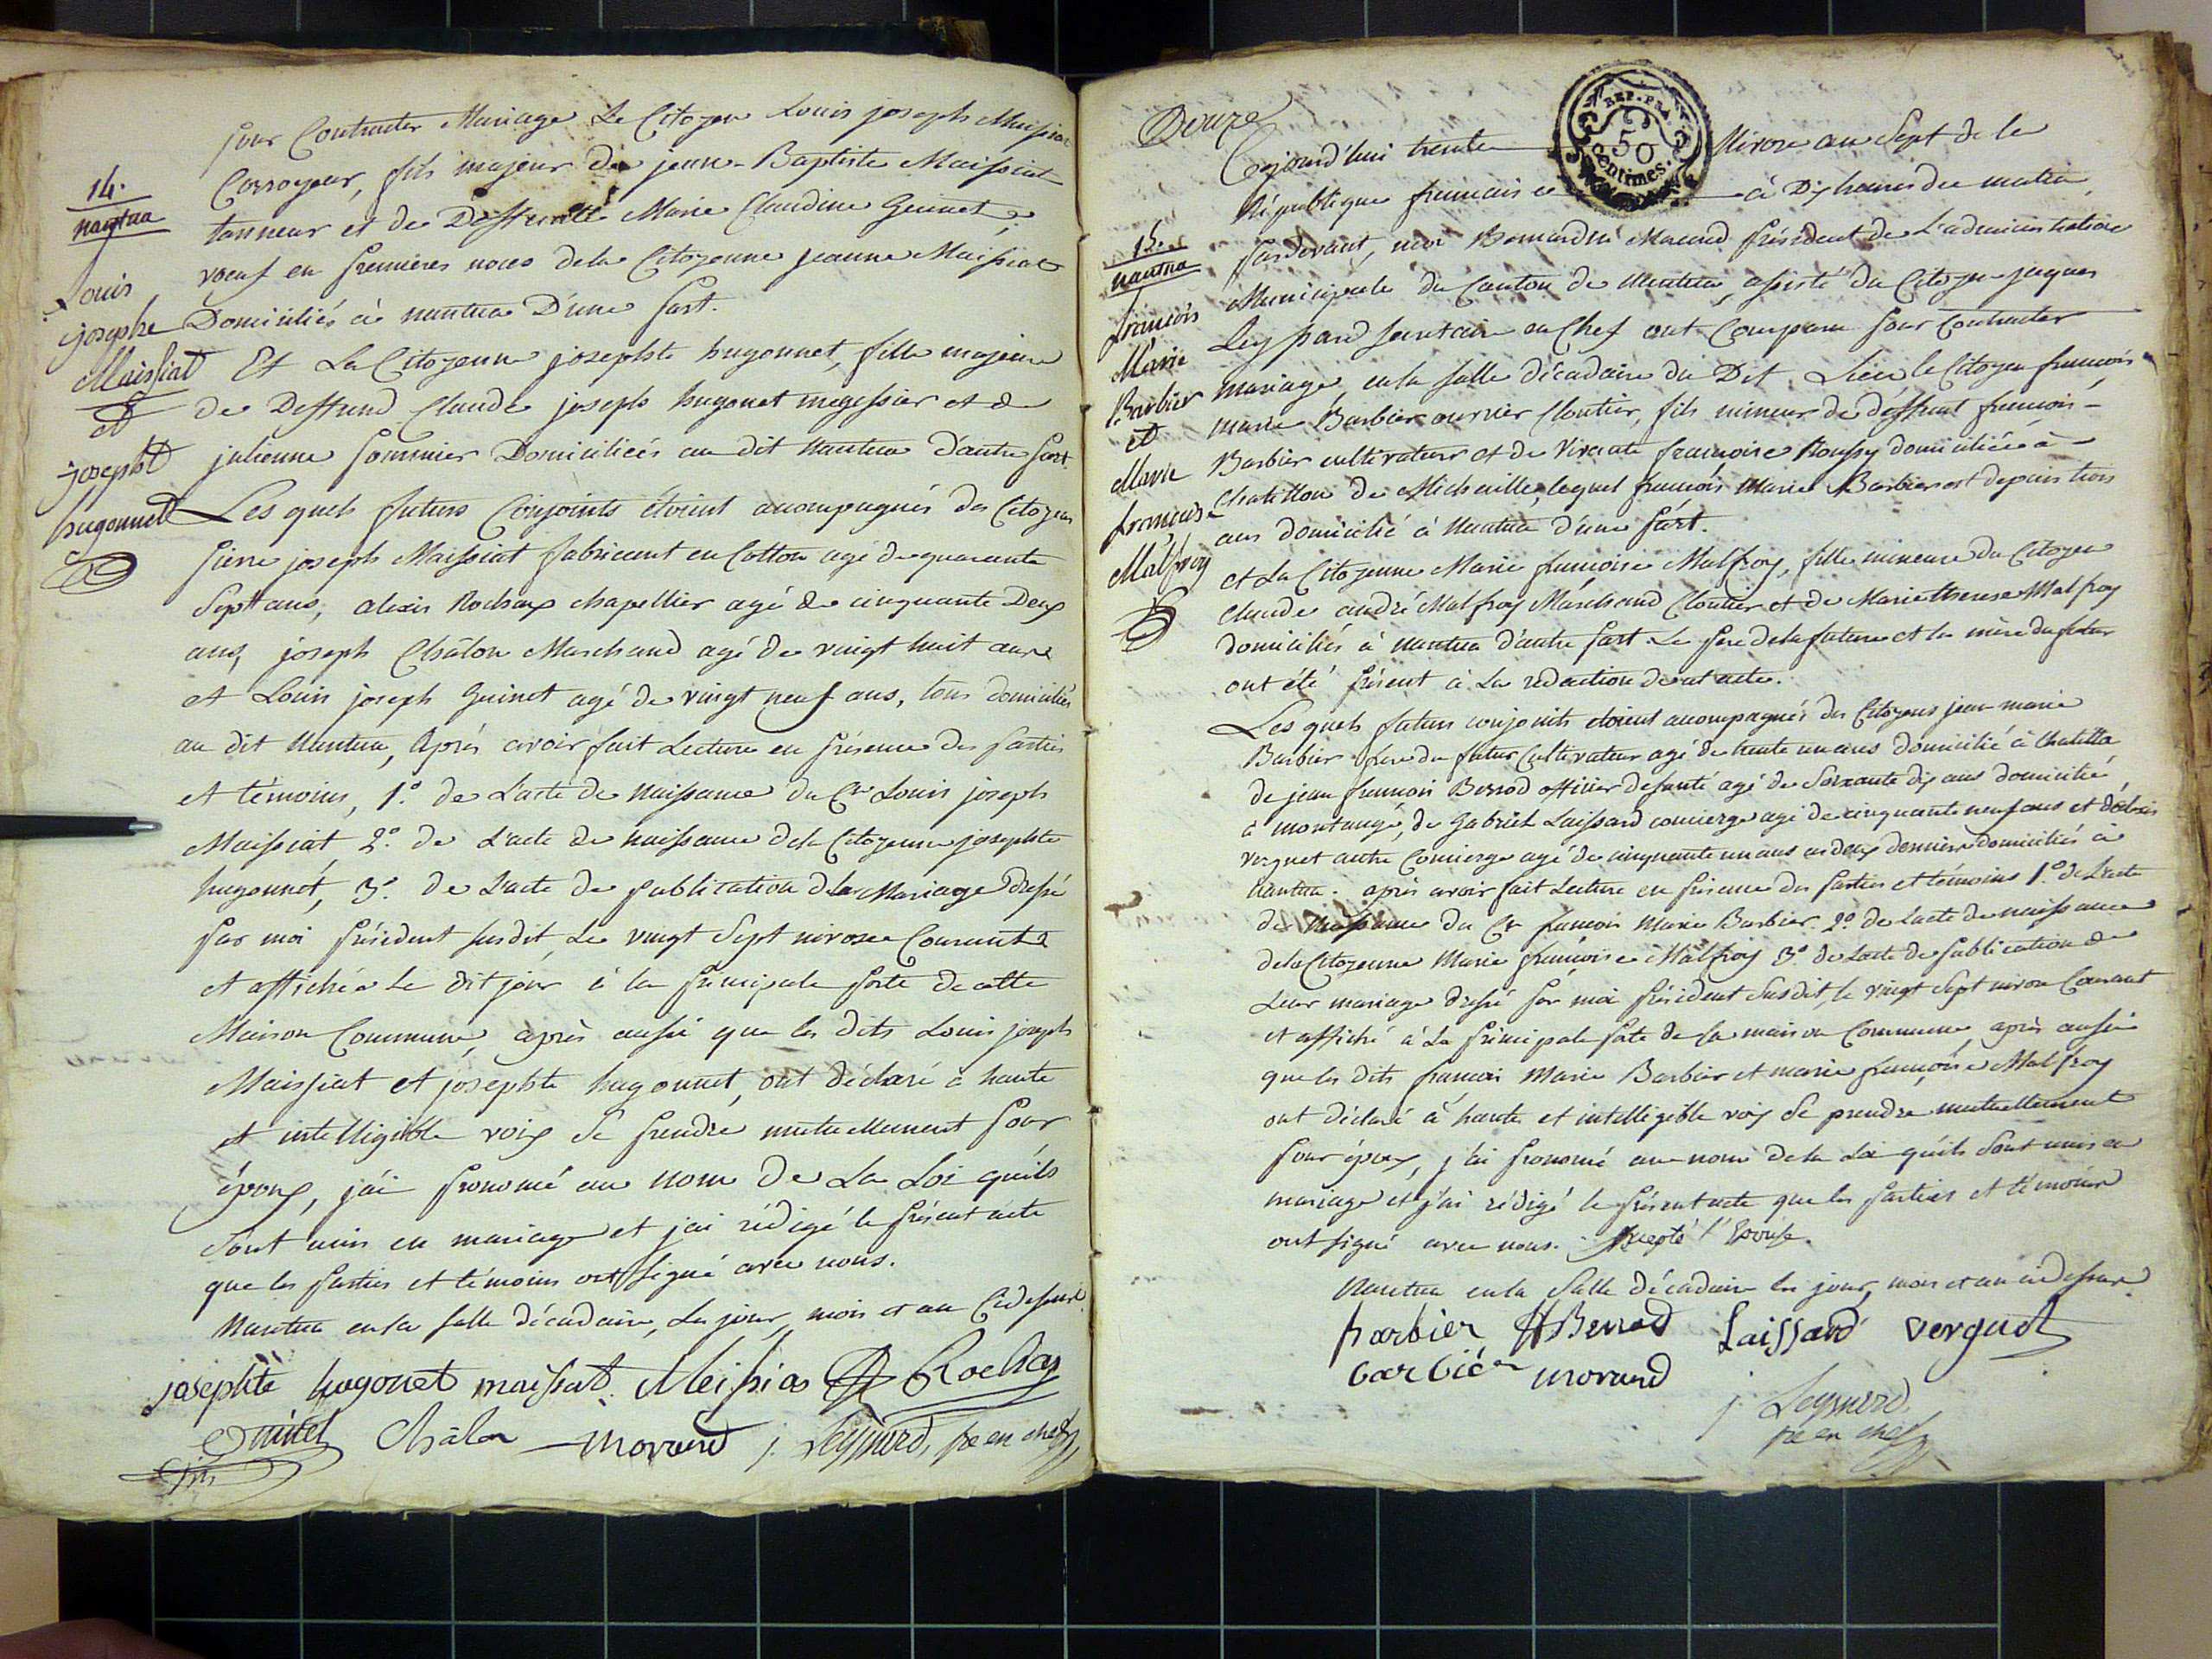 pour Contracter Mariage Le Citoyen Louis joseph Maissiat
Corroyeur, fils majeur de jean Baptiste Maissiat
tanneur et de Deffunte Marie Claudine Guinet,
voeuf en premières noces dela Citoyenne jeanne Maissiat
Domiciliés à nantua D'une part.
Et La Citoyenne josephte hugonnet, fille majeure
de Deffund Claude joseph hugonet megissier et de
julienne sommier Domiciliées au dit Nantua d'autre part
Les quels futurs Conjoints étoient accompagnés des Citoyens
pierre joseph Maissiat fabricant en Cotton agé de quarante
Sept ans, alexis Rochaix chapellier agé de cinquante Deux
ans, joseph Châlon Marchand agé de vingt huit ans
et Louis joseph Guinet agé de vingt neuf ans, tous domiciliés
au dit Nantua, Après avoir fait Lecture en présence des parties
et témoins, 1.° de L'acte de Naissance du Cen Louis joseph
Maissiat 2.° de L'acte de naissance dela Citoyenne josephte
hugonnet, 3.° de L'acte de publication de Mariage dressé
par moi président susdit, Le vingt Sept nivose Courant
et affichée Le dit jour à la principale porte de cette
Maison Commune, après aussi que les dits Louis joseph
Maissiat et josephte hugonnet, ont déclaré à haute
et intelligible voix Se prendre mutuellement pour
époux, j'ai prononcé au nom de La Loi qu'ils
Sont unis en mariage et j'ai rédigé le présent acte
que les parties et témoins ont signé avec nous.
Nantua en la salle décadaire, Les jour, mois et an Cidessus
josephte hugonet maissiat. Meissiat A Rochaix
Guinet Châlon morand j. Leyssard, sre en chef
fils
14.
nantua
Louis
josephe
Maissiat
et
josepht
hugonnet
Douze
Cejourd'hui trente
REP. FRA.
50
centimes.
Nivose an Sept de la
République francaise à Dix heures du matin,
pardevant, moi Bernardin Morand président de L'administration
Municipale du Canton de Nantua, assisté du Citoyen jaques
Leyssard secretaire en Chef ont Comparu pour Contracter
mariage, en la salle décadaire du Dit Lieu, le Citoyen françois
marie Barbier ouvrier Cloutier, fils mineur de deffunt françois
Barbier cultivateur et de vivante françoise Roussy domiciliée à
Chatillon de Michaille, lequel françois Marie Barbier est depuis trois
ans domicilié à Nantua d'une part.
et La Citoyenne Marie françoise Malfroy, fille mineure du Citoyen
Claude andré Malfroy Marchand Cloutier et de Marie therese Malfroy
domiciliés à Nantua d'autre part. Le pere dela future et la mère du futur
ont été présent à La redaction de cet acte.
Les quels futurs conjoints etoient accompagnés des Citoyens jean marie
Barbier frere du futur Cultivateur agé de trente un ans domicilié à Chatillon
de jean francois Berrod officier de santé agé de Soixante dix ans domicilié
à montange, de Gabriel Laissard concierge agé de cinquante neuf ans et d'
verguet autre Concierge agé de cinquante un ans ces deux derniers domiciliés a
Nantua. après avoir fait Lecture en présence des parties et témoins 1.° de L'acte
de Naissance du Cen francois Marie Barbier. 2.° de L'acte de naissance
dela Citoyenne Marie françoise Malfroy 3.° de L'acte de publication de
Leur mariage dressé par moi président Susdit, le vingt Sept nivose Courant
et affiché à La principale porte de la maison Commune, après aussi
que les dits francois Marie Barbier et marie françoise Malfroy
ont déclaré à haute et intelligible voix Se prendre mutuellement
pour époux, j'ai prononcé au nom dela Loi qu'ils Sont unis en
mariage et j'ai rédigé le présent acte que les parties et témoins
ont signé avec nous. Excepté l'Epouse.
Nantua en la Salle décadaire les jour, mois et an cidessus
barbier Berrod Laissard verguet
barbier morand
j. Leyssard
sre en chef
15.
nantua
françois
Marie
Barbier
et
Marie
françoise
Malfroy